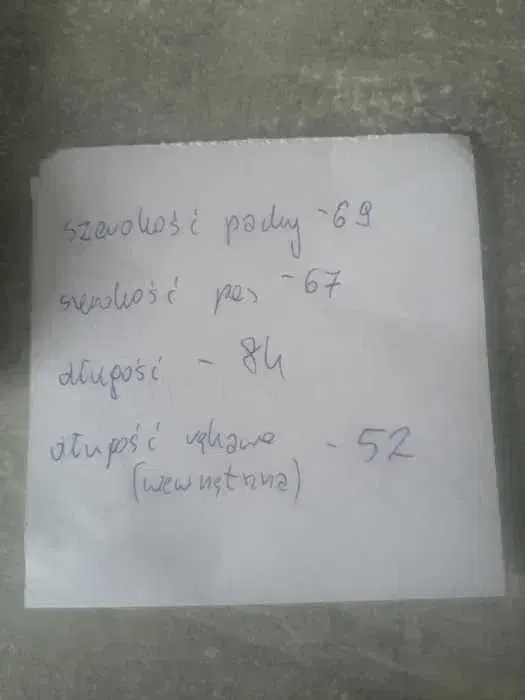 szerokość pachy - 69
szerokość pas - 67
długość - 84
długość rękawa - 52
(wewnętrzna)